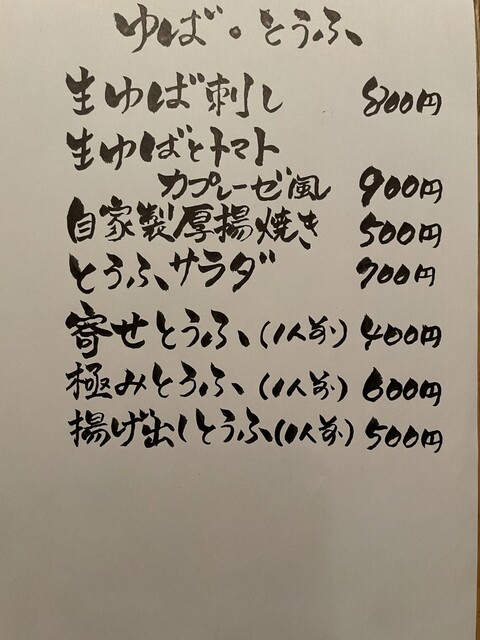 ゆば・とうふ
生ゆば刺し 800円
生ゆばとトマト
カプレーゼ風 900円
自家製厚揚焼き 500円
とうふサラダ 700円
寄せとうふ(1人前) 400円
極みとうふ(1人前) 600円
揚げ出しとうふ(1人前) 500円